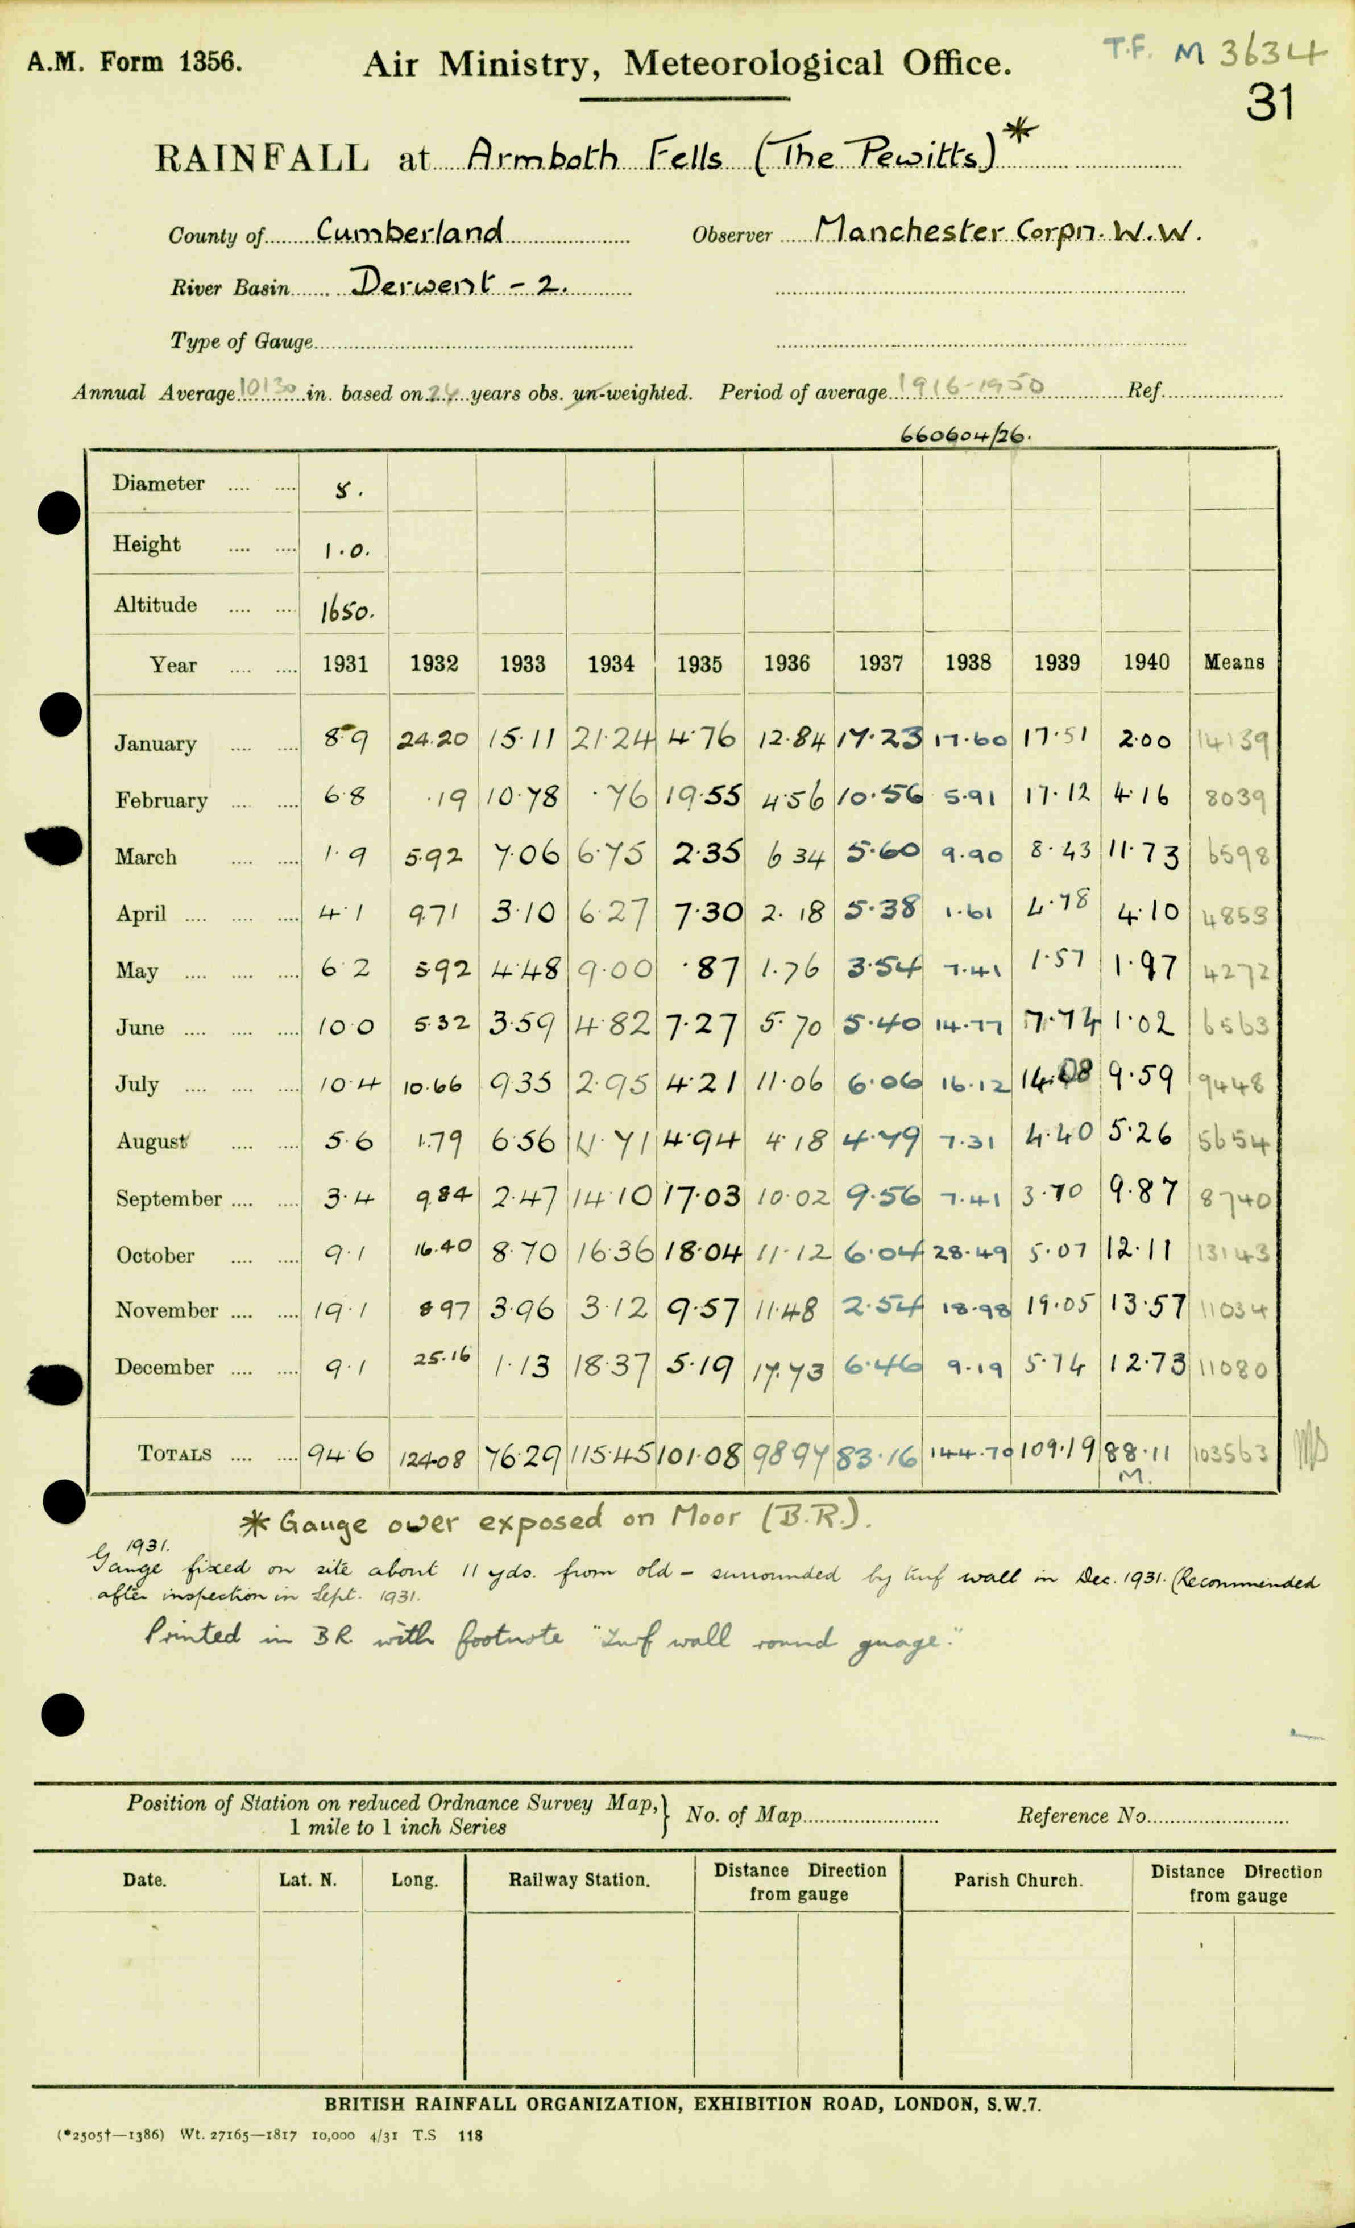 A.M. Form 1356.
Air Ministry, Meteorological Office.
T.F. M 3634
31
RAINFALL at Armboth Fells (The Pewitts) *
County of Cumberland Observer Manchester Corpn. W.W.
River Basin Derwent - 2.
Type of Gauge
Annual Average 10130 in. based on 24 years obs. un-weighted. Period of average 1916-1950 Ref.
660604/26.
Diameter 8.
Height 1.0.
Altitude 1650.
Year 1931 1932 1933 1934 1935 1936 1937 1938 1939 1940 Means
January 8.9 24.20 15.11 21.24 4.76 12.84 17.23 17.60 17.51 2.00 14139
February 6.8 .19 10.78 .76 19.55 4.56 10.56 5.91 17.12 4.16 8039
March 1.9 5.92 7.06 6.75 2.35 6 34 5.60 9.90 8.43 11.73 6598
April 4.1 9.71 3.10 6.27 7.30 2.18 5.38 1.61 4.78 4.10 4853
May 6 2 5.92 4.48 9.00 .87 1.76 3.54 7.41 1.57 1.97 4272
June 10.0 5.32 3.59 4.82 7.27 5.70 5.40 14.77 7.74 1.02 6563
July 10.4 10.66 9.35 2.95 4.21 11.06 6.06 16.12 14.08 9.59 9448
August 5.6 1.79 6.56 11.71 4.94 4.18 4.79 7.31 4.40 5.26 5654
September 3.4 9.84 2.47 14.10 17.03 10.02 9.56 7.41 3.70 9.87 8740
October 9.1 16.40 8.70 16.36 18.04 11.12 6.04 28.49 5.07 12.11 13143
November 19.1 8.97 3.96 3.12 9.57 11.48 2.54 18.98 19.05 13.57 11034
December 9.1 25.16 1.13 18.37 5.19 17.73 6.46 9.19 5.74 12.73 11080
TOTALS 94.6 124.08 76.29 115.45 101.08 98.97 83.16 144.70 109.19 88.11 103563
M.
* Gauge over exposed on Moor (B.R.).
1931.
Gauge fixed on site about 11 yds. from old - surrounded by turf wall in Dec. 1931. (Recommended
after inspection in Sept. 1931.
Printed in BR with footnote "Turf wall round guage."
Position of Station on reduced Ordnance Survey Map, } No. of Map Reference No.
1 mile to 1 inch Series
Date. Lat. N. Long. Railway Station. Distance Direction from gauge Parish Church. Distance Direction from gauge
BRITISH RAINFALL ORGANIZATION, EXHIBITION ROAD, LONDON, S.W.7.
(*2505†—1386) Wt. 27165—1817 10,000 4/31 T.S 118